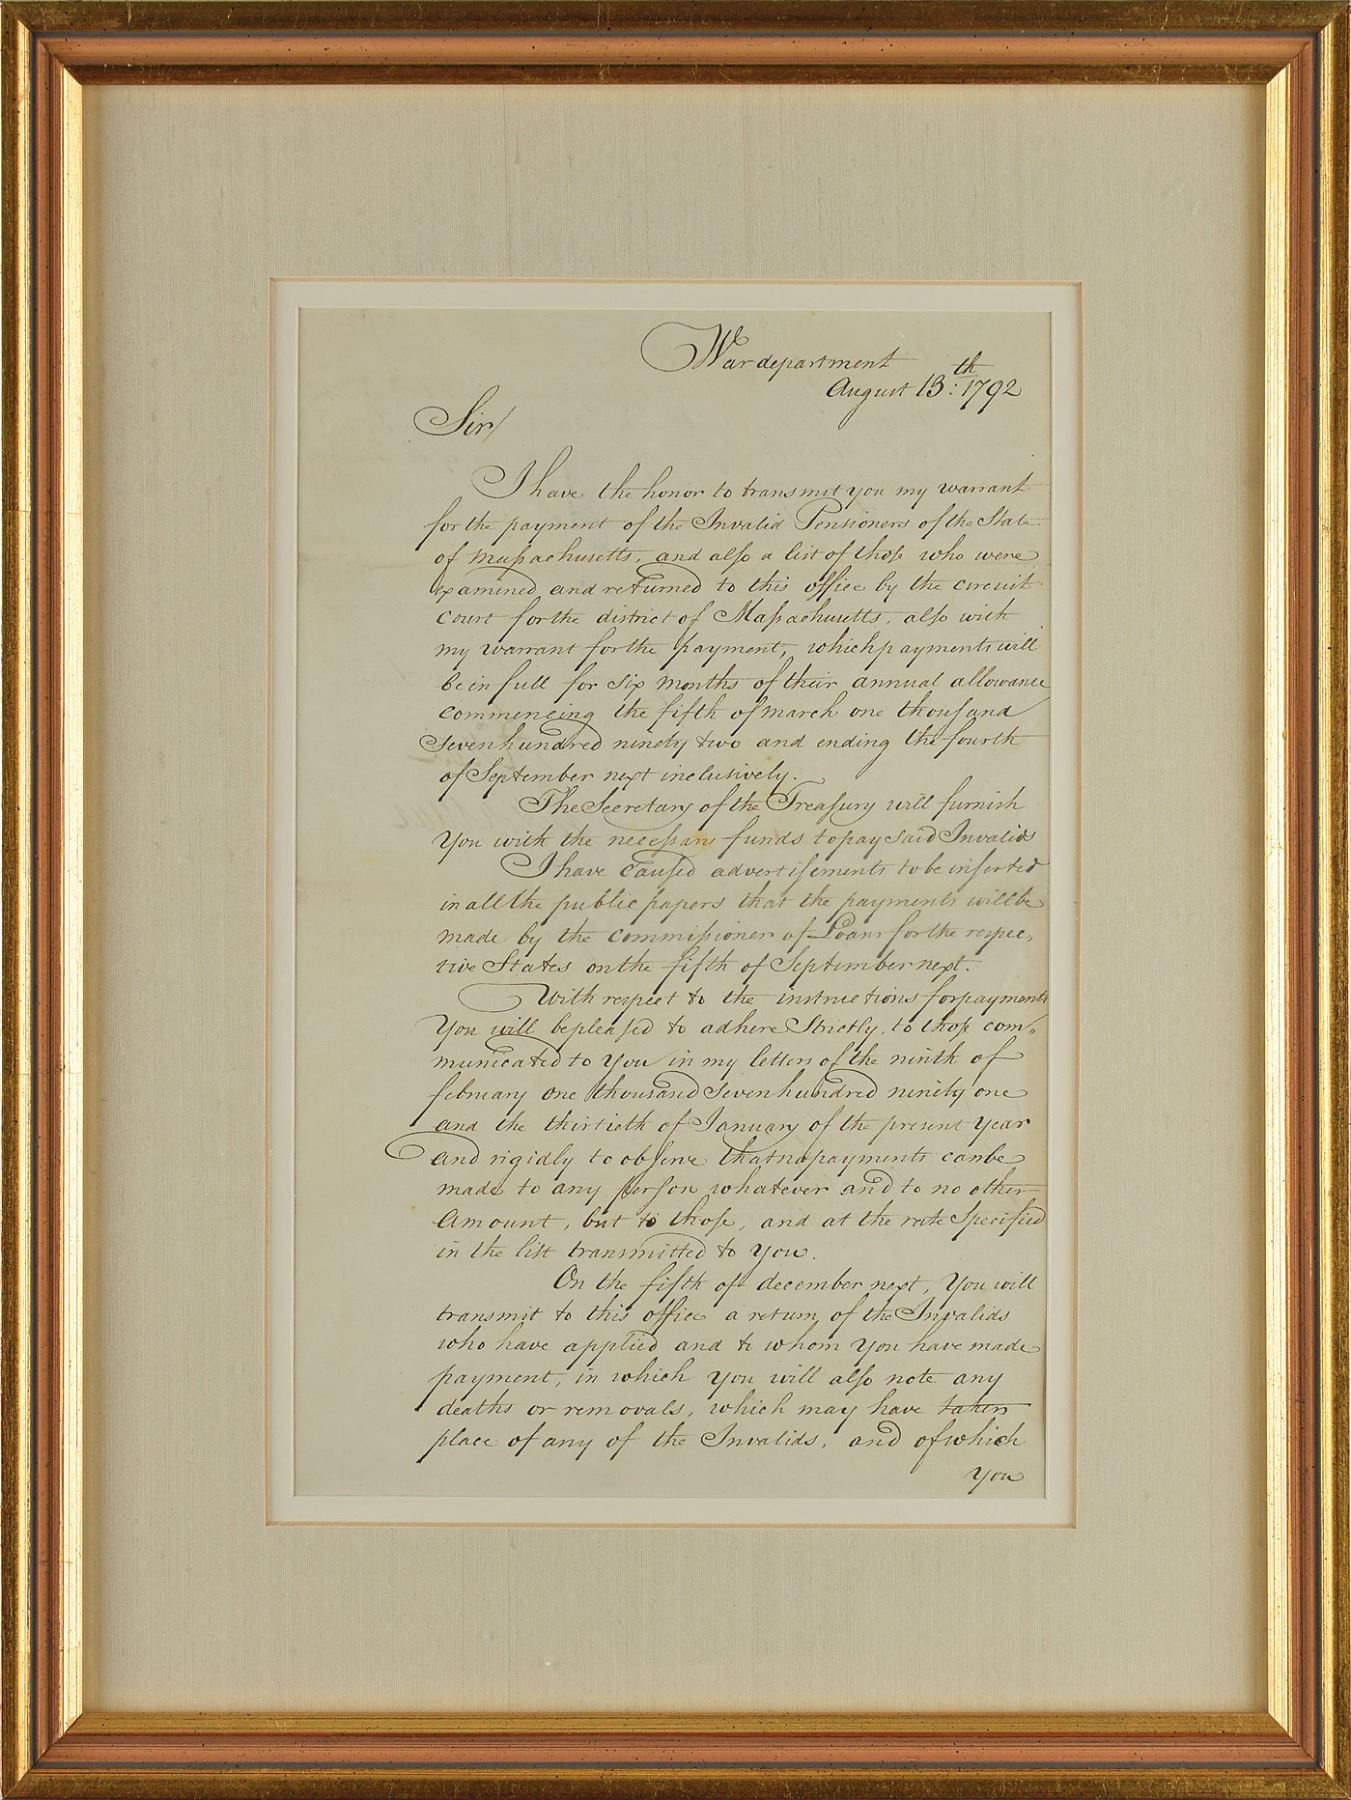 War department
August 13:th 1792
Sir/
I have the honor to transmit you my warrant
for the payment of the Invalid Pensioners of the State
of Massachusetts, and also a list of those who were
examined and returned to this office by the circuit
court for the district of Massachusetts, also with
my warrant for the payment, which payments will
be in full for six months of their annual allowance
commencing the fifth of march one thousand
seven hundred ninety two and ending the fourth
of September next inclusively.
The Secretary of the Treasury will furnish
You with the necessary funds to pay said Invalids
I have caused advertisements to be inserted
in all the public papers that the payments will be
made by the commissioner of Loans for the respec„
tive States on the fifth of September next.
With respect to the instructions for payments
You will be pleased to adhere Strictly, to those com„
municated to You in my letters of the ninth of
february one thousand seven hundred ninety one
and the thirtieth of January of the present Year
and rigidly to observe that no payments can be
made to any person whatever and to no other
Amount, but to those, and at the rate Specified
in the list transmitted to You.
On the fifth of december next, You will
transmit to this office a return of the Invalids
who have applied and to whom You have made
payment, in which You will also note any
deaths or removals, which may have taken
place of any of the Invalids, and of which
You